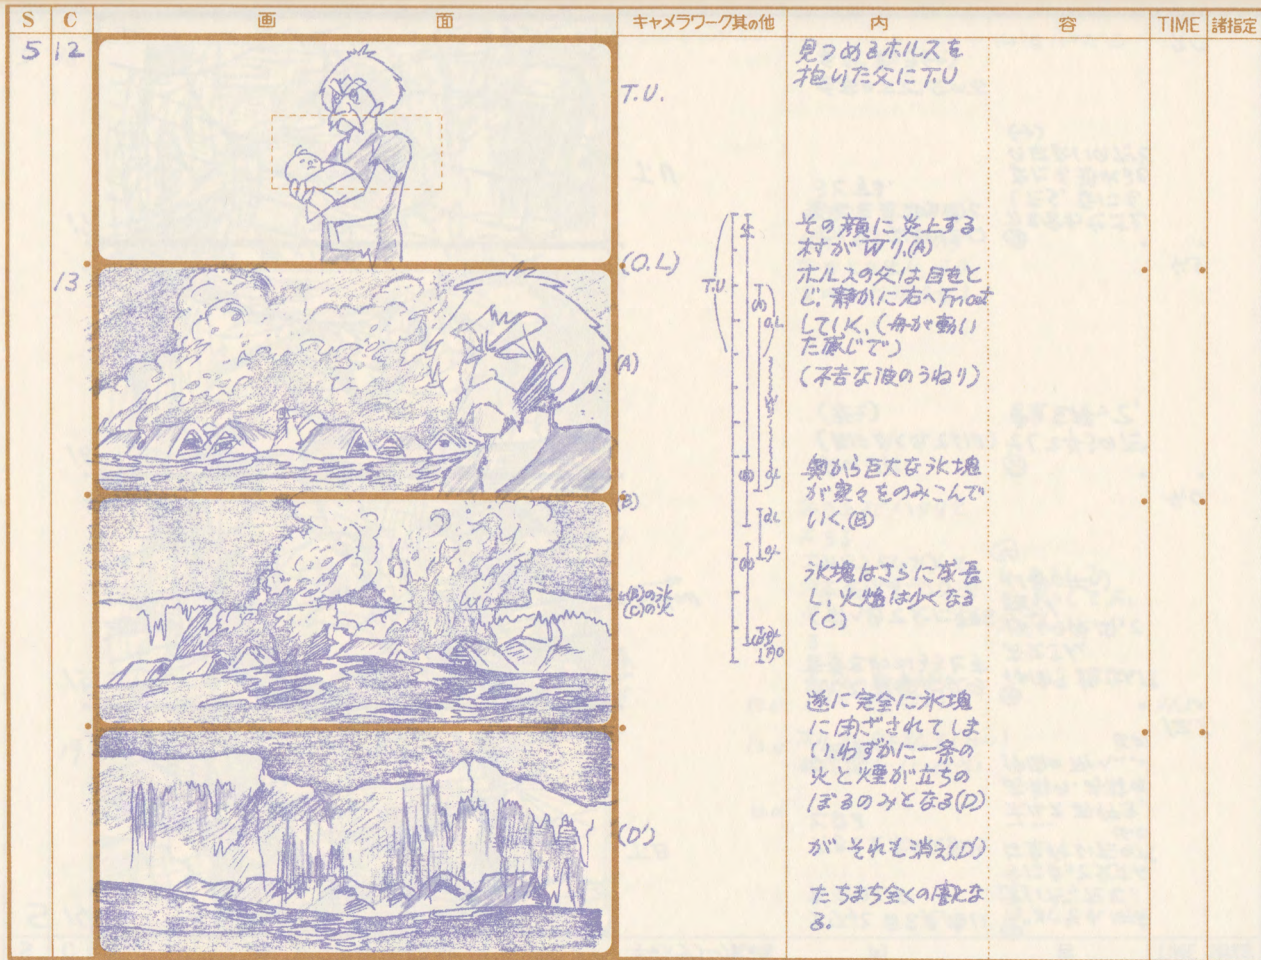 S C 画 面 キャメラワーク其の他 内 容 TIME 諸指定
5 12
T.U.
見つめるホルスを
抱いた父にT.U
その顔に炎上する
村がWり、(A)
13
(O.L)
ホルスの父は目をと
じ、静かに右へFnoat
していく、(舟が動い
た感じで)
(不吉な波のうねり)
T.U
(A)
O.L
(A)
奥から巨大な氷塊
が家々をのみこんで
いく、(B)
(B)
氷塊はさらに成長
し、火焔は少くなる
(C)
(B)の氷
(C)の火
遂に完全に氷塊
に閉ざされてしま
い、わずかに一条の
火と煙が立ちの
ぼるのみとなる(D)
(D')
が それも消え(D')
たちまち全くの廃とな
る.